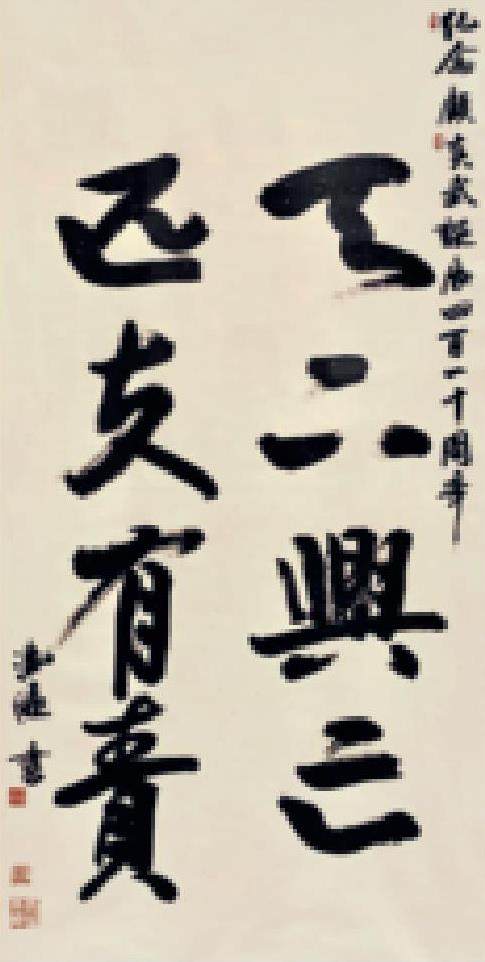 紀念顧炎武誕辰四百一十周年
天下興亡
匹夫有責
書